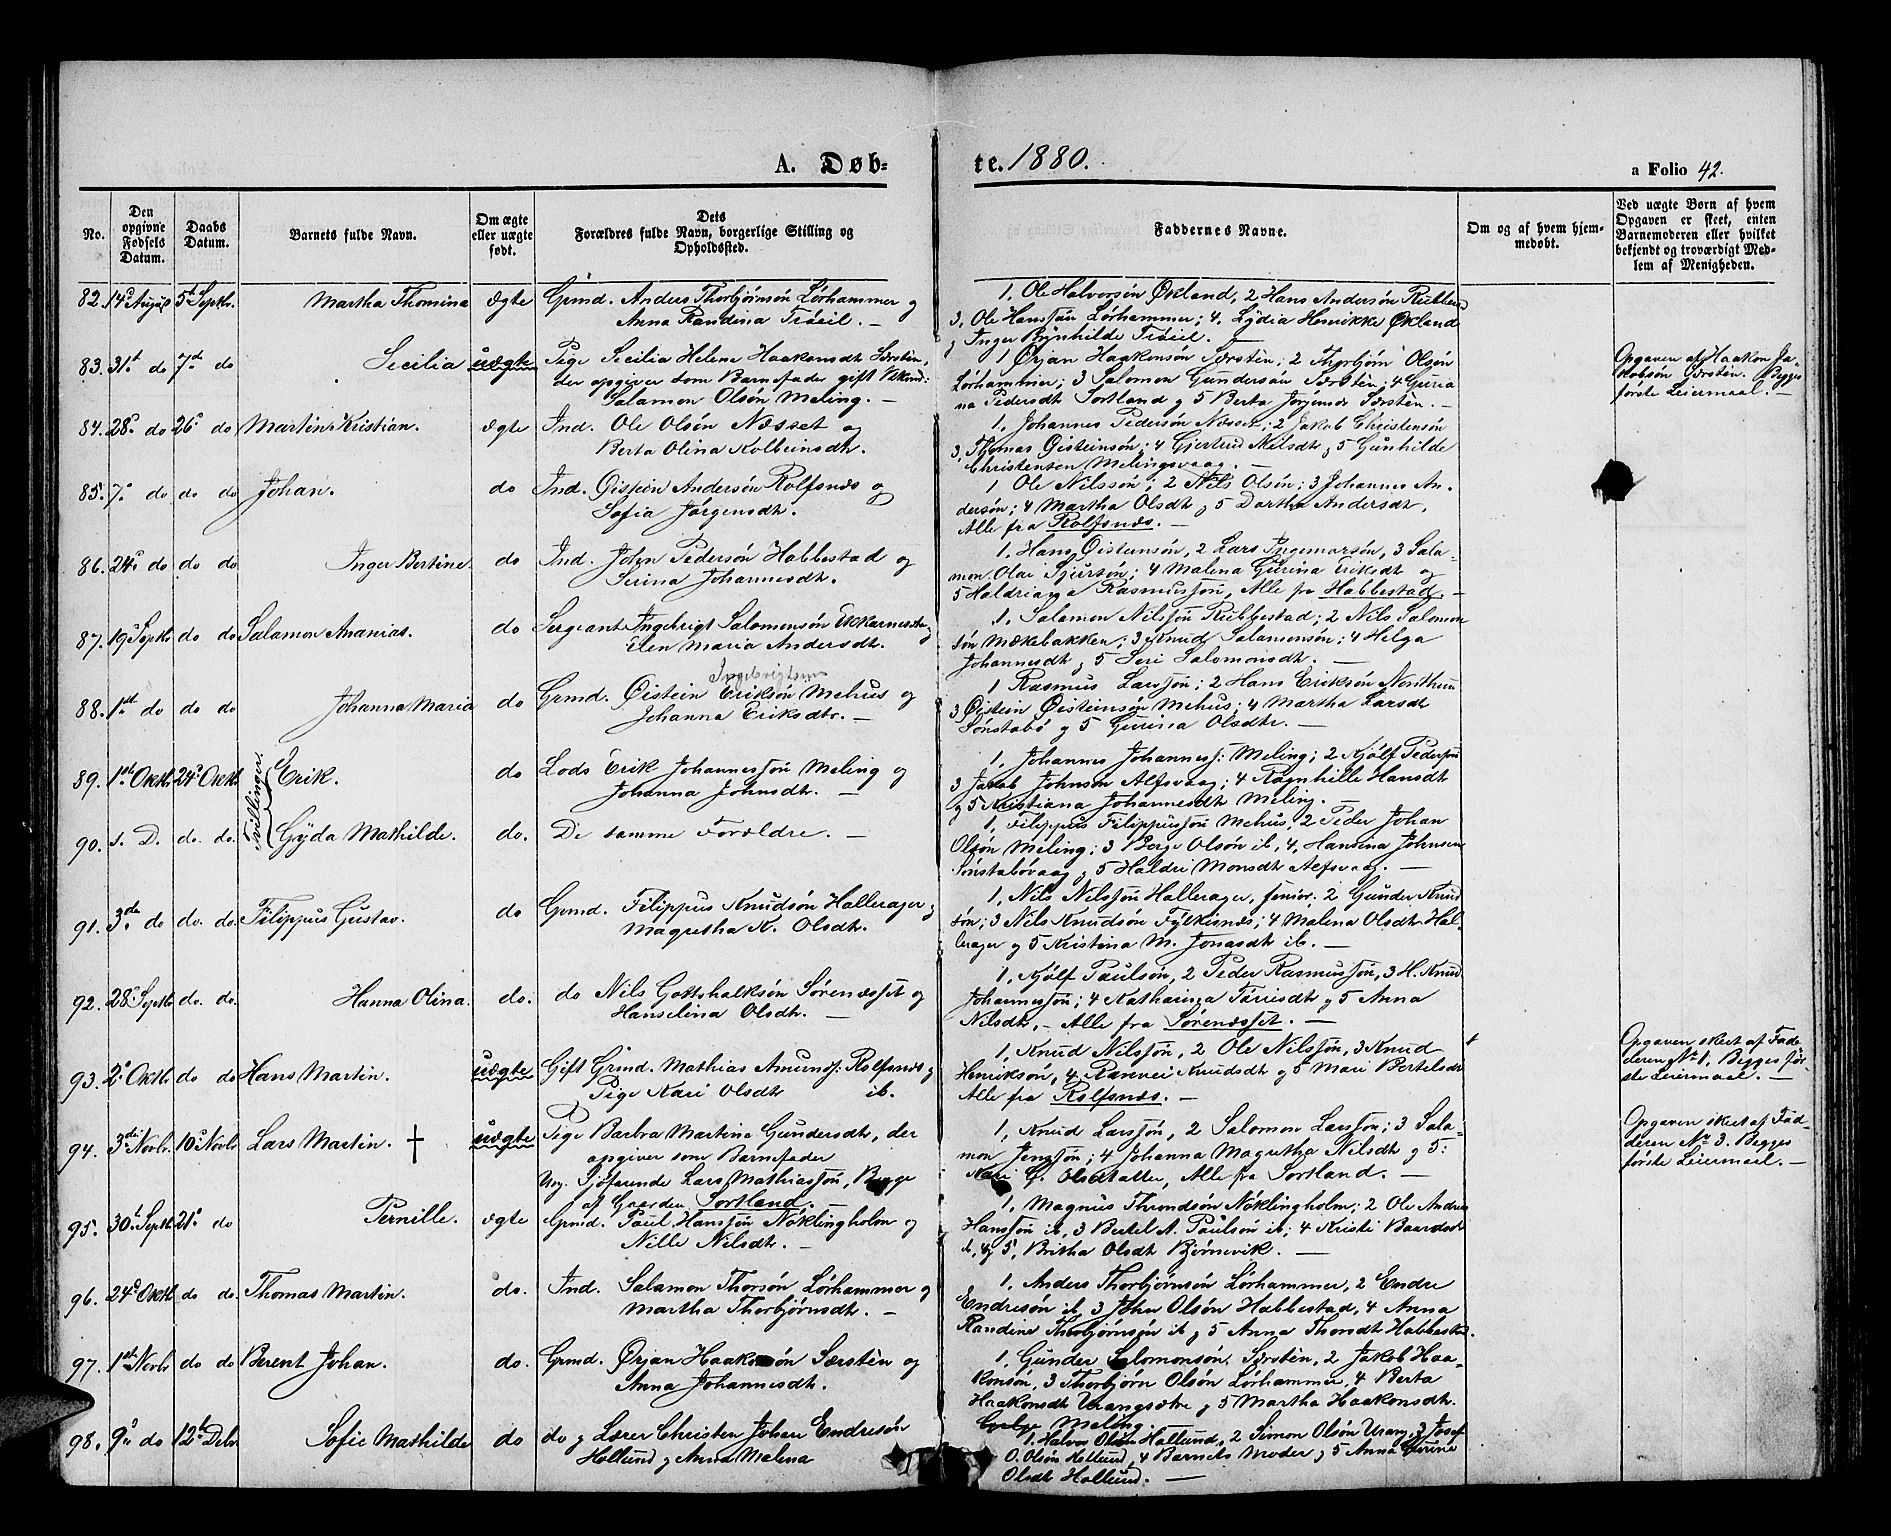 A. Døb=
te. 1880.
a Folio 42.
No.
Den opgivne Fødsels Datum.
Daabs Datum.
Barnets fulde Navn.
Om ægte eller uægte født.
Dets Forældres fulde Navn, borgerlige Stilling og Opholdssted.
Faddernes Navne.
Om og af hvem hjem-
medøbt.
Ved uægte Børn af hvem
Opgaven er skeet, enten
Barnemoderen eller hvilket
bekjendt og troværdigt Med-
lem af Menigheden.
82. 14de August 5te Septbr. Martha Thomina ægte Grmd. Anders Thorbjørnsøn Lørhammer og
Anna Randina Trøeil. —
1, Ole Halvorsøn Økland, 2 Hans Andersøn
3, Ole Hanssøn Lørhammer; 4, Lydia Henrikke Økland
og Inger Brynhilde Trøeil. —
83. 31te do 7de do Secilia uægte Pige Secilia Helene Haakonsdt Særstén,
der opgiver som Barnefader gift
Salamon Olsøn Meling. —
1 Ørjan Haakonsøn Særstén; 2 Thorbjørn Olsøn
Lørhammer; 3 Salomon Gundersøn Særstén; 4 Guria
na Pedersdt Sortland og 5 Berta Jørgensdt Særstén. —
Opgaven af Haakon Ja-
kobsøn Særstén. Begges
første Leiermaal. —
84. 28de do 26de do Martin Kristian. ægte Ind. Ole Olsøn Næsset og
Berta Olina Kolbeinsdtr.
1, Johannes Pedersøn Næsset; 2 Jakob Christensøn
3, Thomas Øisteinsøn; 4 Gjertrud Nilsdt og 5 Gunhilde
Christensen Melingsvaag. —
85. 7de do do do Johan. do Ind. Øistein Andersøn Rolfsnæs og
Sofia Jørgensdtr.
1 Ole Nilssøn; 2 Nils Olsøn; 3 Johannes An-
dersøn; 4 Martha Olsdt og 5 Dorthe Andersdt,
Alle fra Rolfsnæs. —
86. 24de do do do Inger Bertine do Ind. John Pedersøn Habbestad og
Serina Johannesdtr.
1, Hans Øisteinsøn, 2 Lars Ingemarsøn, 3 Sala-
mon Olai Sjursøn; 4 Malena Gurina Eriksdt og
5 Haldriana Rasmussøn, Alle fra Habbestad. —
87. 19de Septbr do do Salamon Ananias. do Sergeant Ingebrigt Salomonsøn og
Elen Maria Andersdtr.
1, Salamon Nilssøn Rubbestad; 2 Nils Salomon
søn Mækebakken; 3 Knud Salamonsøn; 4 Helga
Johannesdt og 5 Seri Salomonsdt. —
Ingebrigtsen
88. 1ste do do do Johanna Maria do Grmd. Øistein Eriksøn Mehus og
Johanna Eriksdtr. —
1 Rasmus Larssøn; 2 Hans Eriksøn
3 Øistein Øisteinsøn Mehus; 4 Martha Larsdt
Sønstabø og 5 Gurina Olsdtr. —
89. 1ste Oktbr 24de Oktbr Tvillinger Erik. do Lods Erik Johannessøn Meling og
Johanna Johnsdtr. —
1, Johannes Johanness: Meling; 2 Kjølf Pedersøn
3 Jakob Johnsøn Alfsvaag; 4 Ragnhille Hansdt
og 5 Kristiana Johannesdt Meling. —
90. s. D. do. do. Gyda Mathilde. do. De samme Forældre. —
1, Filippus Filippussøn Mehus, 2 Peder Johan
Olsøn Meling; 3 Børge Olsøn ib, 4, Handina Johnsen
Sønstabøvaag og 5 Haldri Monsdt Alfsvaag. —
91. 3de do do. do. Filippus Gustav. do Grmd. Filippus Knudsøn Hallerager og
Magretha K. Olsdtr.
1, Nils Nilssøn Hallerager, senior, 2 Gunder Knud
søn; 3 Nils Knudsøn Fylkesnæs; 4 Malena Olsdt Hal-
lerager og 5 Kristina M. Jonasdt ib. —
92. 28de Septbr do. do. Hanna Olina. do. do Nils Gottshalksøn Sørenæsset og
Hanselina Olsdtr. —
1, Kjølf Paulsøn, 2 Peder Rasmussøn, 3 H. Knud
Johannessøn; 4 Katharina Tørrisdt og 5 Anna
Nilsdtr. — Alle fra Sørenæsset. —
93. 2de Oktbr do do Hans Martin. uægte Gift Grmd. Mathias Amunds: Rolfsnæs og
Pige Kari Olsdtr ib.
1, Knud Nilssøn, 2 Ole Nilssøn, 3 Knud
Henriksøn, 4 Rannvei Knudsdt og 5 Mari Bertelsdt
Alle fra Rolfsnæs. —
Opgaven skeet af Fad-
deren No 1. Begges før-
ste Leiermaal. —
94. 3die Novbr. 10de Novbr Lars Martin. † uægte Pige Barbra Martina Gundersdt, der
opgiver som Barnefader
Ung. Sjøfarende Lars Mathiassøn, Begge
af Gaarden Sortland. —
1, Knud Larssøn, 2 Salomon Larssøn; 3 Sala-
mon Jenssøn; 4 Johanna Magretha Nilsdt og 5:
Kari G. Olsdatter, Alle fra Sortland. —
Opgaven skeet af Fad-
deren No 3. Begges
første Leiermaal. —
95. 30te Septbr 21de do Pernille. ægte Grmd. Paul Hanssøn Nøklingholm og
Nille Nilsdtr. —
1, Magnus Throndsøn Nøklingholm; 2 Ole Andreas
Hanssøn ib, 3 Bertel A. Paulsøn ib; 4 Kristi Baardsdt
ib, og 5, Britha Olsdt Bjørnevik. —
96. 24de Oktbr do do. Thomas Martin. do. Ind. Salamon Thorsøn Lørhammer og
Martha Thorbjørnsdtr. —
1, Anders Thorbjørnsøn Lørhammer, 2 Endre
Endresøn ib, 3 John Olsøn Habbestad, 4 Anna
Randine Thorbjørnsøn ib og 5 Anna Thorsdt Habbestad.
97. 1ste Novbr do do Berent Johan. do. Grmd. Ørjan Haakonsøn Særstén og
Anna Johannesdtr.
1, Gunder Salomonsøn Særstén, 2 Jakob Haa-
konsøn, 3 Thorbjørn Olsøn Lørhammer, 4 Berta
Haakonsdt Urangsætre og 5 Martha Haakonsdtr.
Meling.
98. 9de do 12te Debr Sofie Mathilde do do og Lærer Christen Johan Endresøn
Hollund og Anna Malena
1, Halvor Olsøn Hollund, 2 Simon Olsøn Urang, 3 Josef
O. Olsøn Hollund, 4 Barnets Moder og 5 Anna Gurine
Olsdt Hollund. —